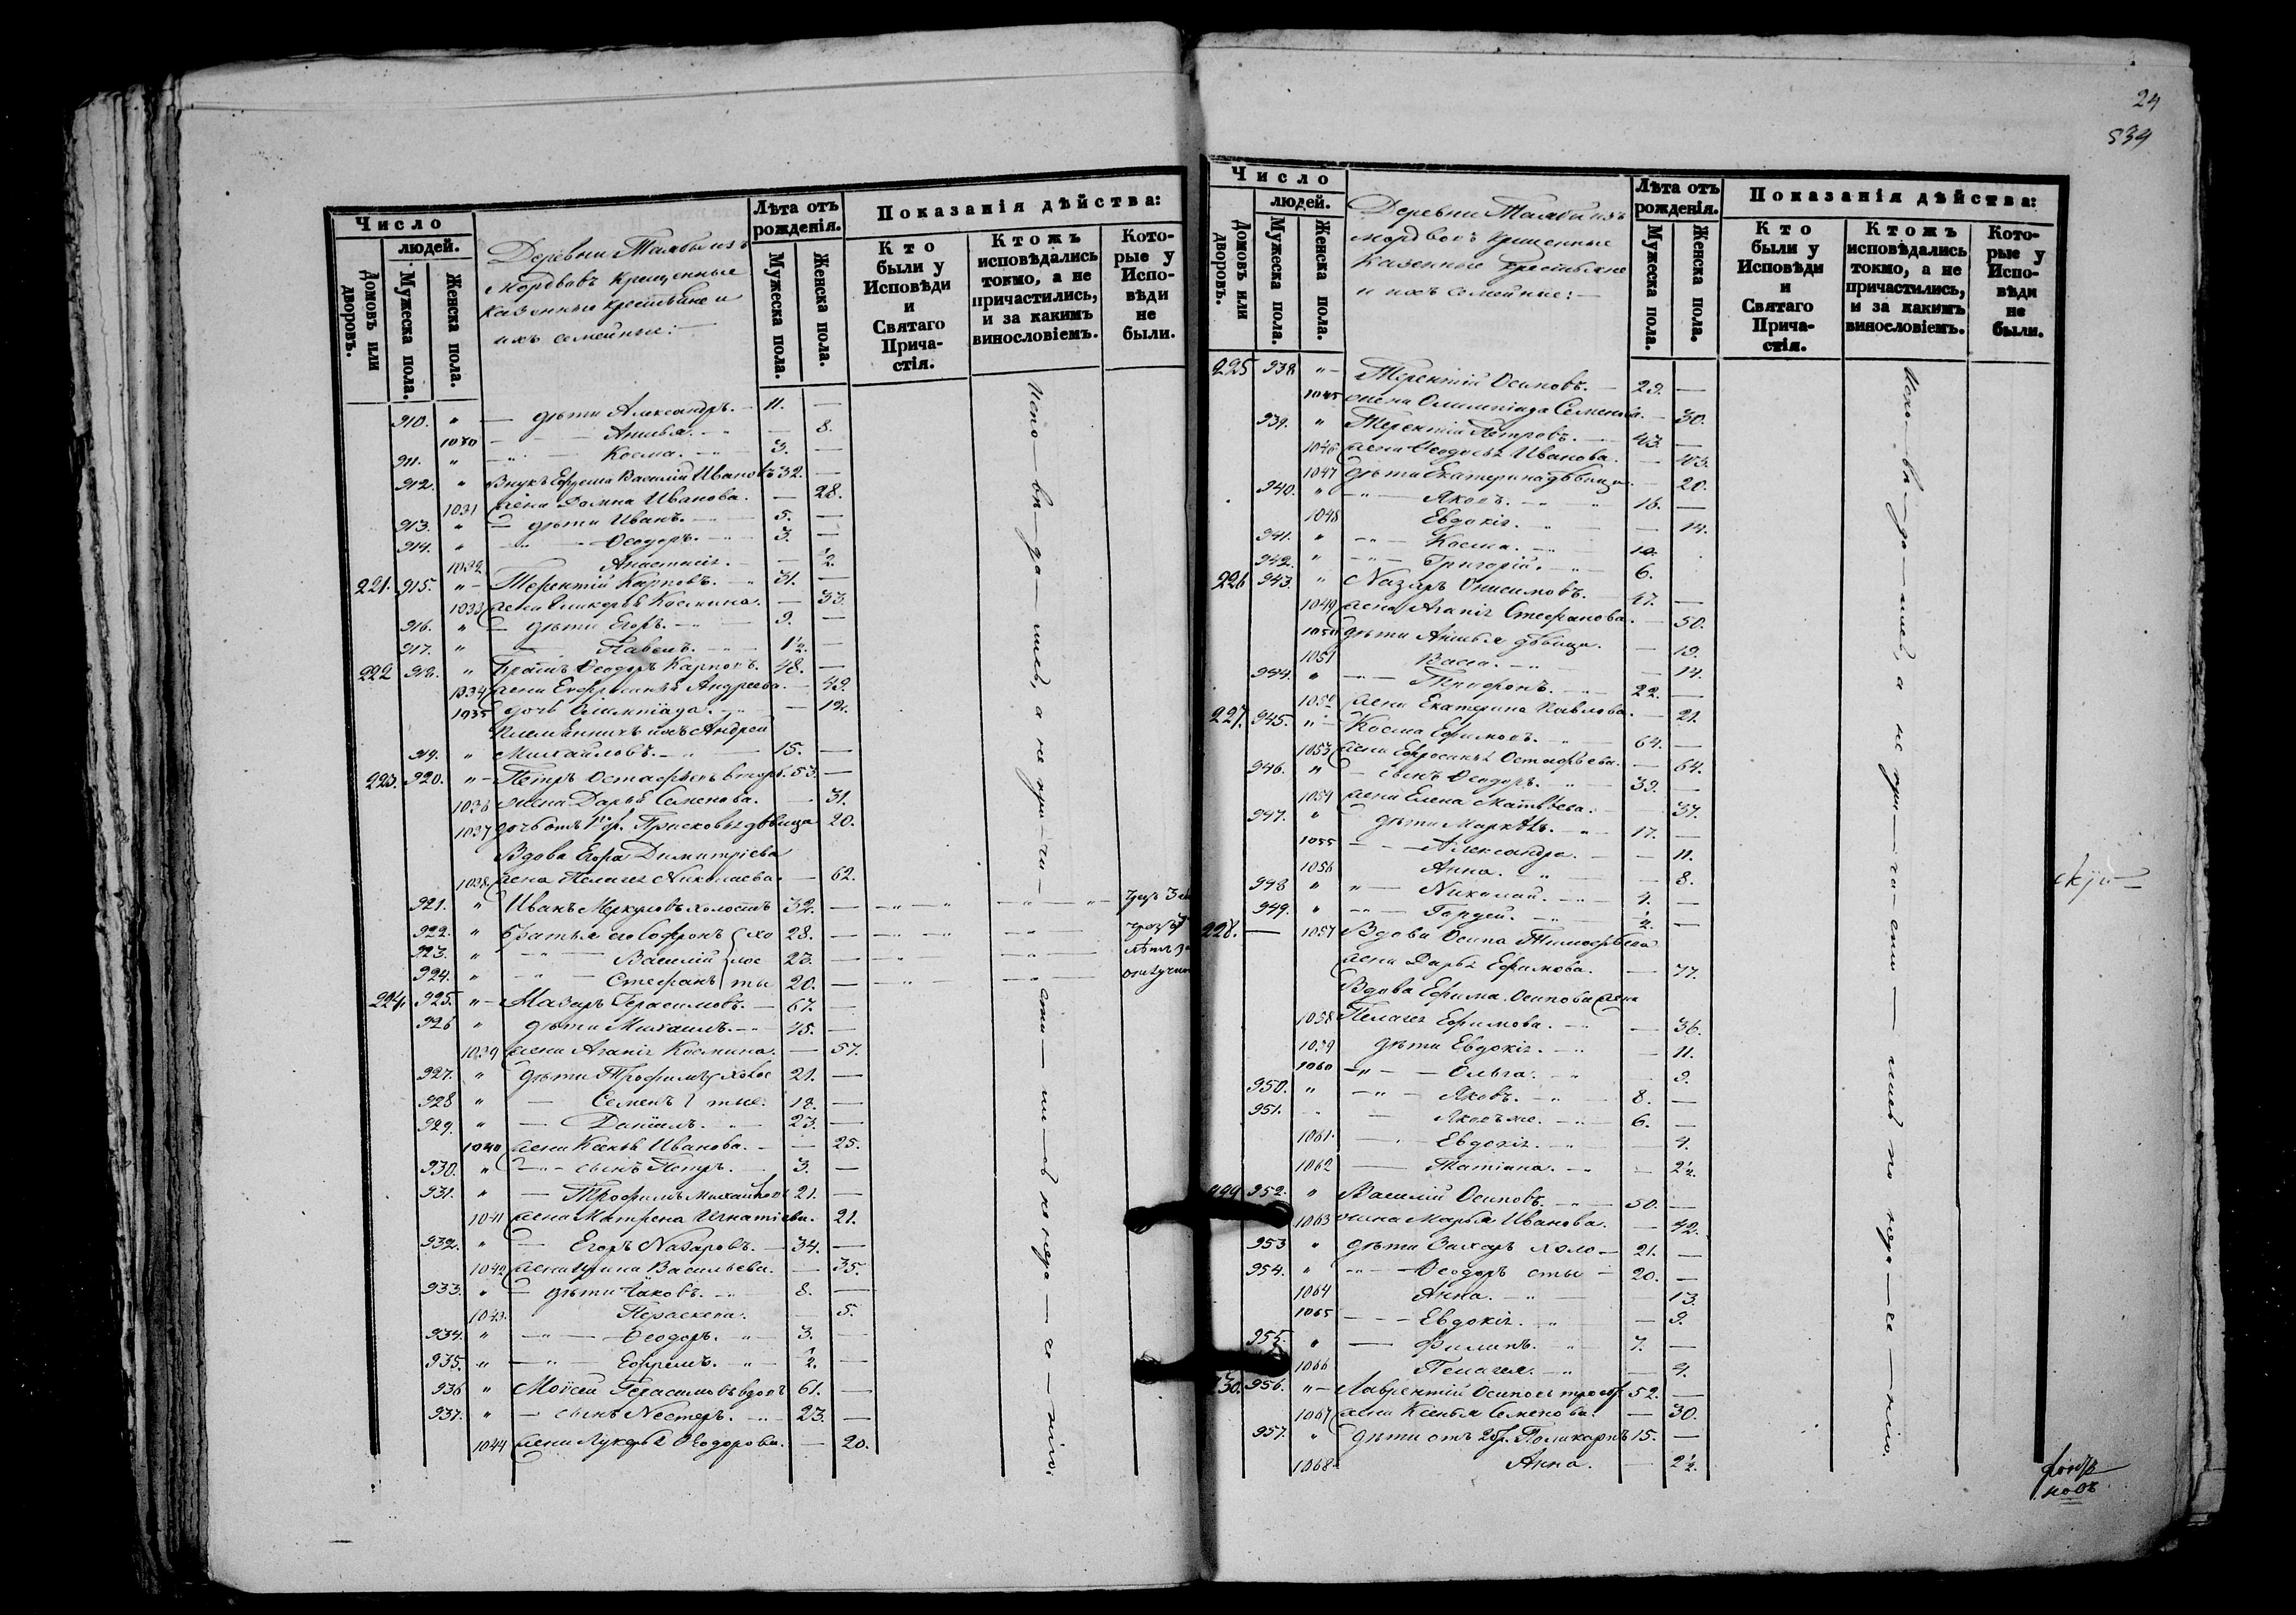 24
534
Число
людей.
Домовъ или дворовъ.
Мужеска пола.
Женска пола.
Деревни
Мордвовъ крещенные
казенные крестьяне и
ихъ семейные:
Лѣта отъ рожденія.
Мужеска пола.
Женска пола.
Показанія дѣйства:
Кто были у Исповѣди и Святаго Прича-стія.
Ктожъ исповѣдались токмо, а не причастились, и за какимъ винословіемъ.
Кото-рые у Испо-вѣди не были.
910. " — дѣти Александръ. — 11. —
1030 — 8.
911. " — Косма. — 3. —
912. " Внукъ Василій Ивановъ 32. —
1031 жена Домна Иванова. — 28.
913. " — дѣти Иванъ. — 5. —
914. " — Ѳеодоръ. — 3. —
1032 Анастасія. — 1/2.
221. 915. " — Терентій Карповъ. — 31. —
1033 жена Космина. — 33.
916. " — дѣти Егоръ. — 9. —
917. " — Павелъ. — 1 1/2. —
222 918. " Братъ Ѳеодоръ Карповъ. 48. —
1034 жена Андреева. — 49.
1035 дочь Олимпіада. — 12.
Племянникъ ихъ Андрей
919. " Михайловъ. — 15. —
223. 920. " — Петръ 53. —
1036 жена Дарья Семенова. — 31.
1037 дочь отъ 1 бр. Прасковья дѣвица 20.
Вдова Егора Димитріева
1038 жена Пелагея Николаева. — 62.
921. " Иванъ Меркуловъ холостъ 32. —
922. " братья его Софронъ хо 28. —
923. " Василій лос 23. —
924. " Стефанъ ты 20. —
224. 925. " — Назаръ Герасимовъ. — 67. —
926 " дѣти Михаилъ. — 45. —
1039 жена Агапія Космина. — 57.
927. " дѣти Трофимъ холос 21. —
928 " — Семенъ тые. 18. —
929. " — Даніилъ. — 23. —
1040 жена Ксенья Иванова. — 25.
930. " — сынъ Петръ. — 3. —
931. " — Трофимъ Михайловъ 21. —
1041 жена Матрена Игнатіева. — 21.
932. " — Егоръ Назаровъ. — 34. —
1042 жена Ирина Васильева. — 35.
933. " — дѣти Іаковъ. — 8. —
1043. Параскева. — 5.
934. " — Ѳеодоръ. — 3. —
935. " — Ефремъ. — 1/2. —
936 " Моисей Герасимовъ вдовъ 61. —
937. " — сынъ Несторъ. — 23. —
1044 жена Лукерья Ѳеодорова. — 20.
Испо-вѣ-да-лись, а не при-ча-сти-лись по нера-де-нію.
Число
людей.
Домовъ или дворовъ.
Мужеска пола.
Женска пола.
Деревни
Мордвовъ крещенные
Казенные крестьяне
и ихъ семейные: —
Лѣта отъ рожденія.
Мужеска пола.
Женска пола.
Показанія дѣйства:
Кто были у Исповѣди и Святаго Прича-стія.
Ктожъ исповѣдались токмо, а не причастились, и за какимъ винословіемъ.
Кото-рые у Испо-вѣди не были.
225 938 " — Терентій Осиповъ. — 29. —
1045 жена Олимпіада Семенова. — 30.
939. " Терентій Петровъ. — 43. —
1046 жена Ѳеодосья Иванова. — 43.
1047 дѣти Екатерина дѣвица. — 20.
940. " — Яковъ. — 16. —
1048 Евдокія. — 14.
941. " — Косма. — 10.
942. " — Григорій. — 6.
226 943. " Назаръ Онисимовъ. — 47. —
1049 жена Агапія Стефанова. — 50.
1050 дѣти дѣвица. — 19.
1051 Васса. — 14.
944. " — Трифонъ. — 22. —
1052 жена Екатерина Павлова. — 21.
227. 945. " — Косма Ефимовъ. — 64. —
1053 жена Ефросинья Остафьева. — 64.
946. " — сынъ Ѳеодоръ. — 39. —
1054 жена Елена Матвѣева. — 37.
947. " дѣти Маркелъ. — 17. —
1055 — Александра. — 11.
1056 Анна. — 8.
948 " — Николай. — 4. —
949. " — Гордей. — 1/2. —
228. — 1057 Вдова Осипа Тимофѣева
жена Дарья Ефимова. — 77.
Вдова Ефима Осипова жена
1058 Пелагея Ефимова. — 36.
1059 дѣти Евдокія. — 11.
1060 — Ольга. — 9.
950. " — Яковъ. — 8. —
951. — Яковъ же. — 6. —
1061. — Евдокія. — 4.
1062 — Татіана. — 2 1/2.
229 952. " Василій Осиповъ. — 50. —
1063 жена Марья Иванова. — 42.
953 " дѣти Захаръ холо — 21. —
954. " — Ѳеодоръ сты — 20. —
1064 Анна. — 13.
1065 — Евдокія. — 9.
955. " — Филипъ. — 7. —
1066 Пелагея. — 4.
230. 956. " — Лаврентій Осиповъ 52. —
1067 жена Ксенья Семенова. — 30.
957. " дѣти отъ 2 бр. Поликарпъ 15. —
1068. Анна. — 2 1/2.
Испо-вѣ-да-лись, а не при-ча-сти-лись по нера-де-нію.